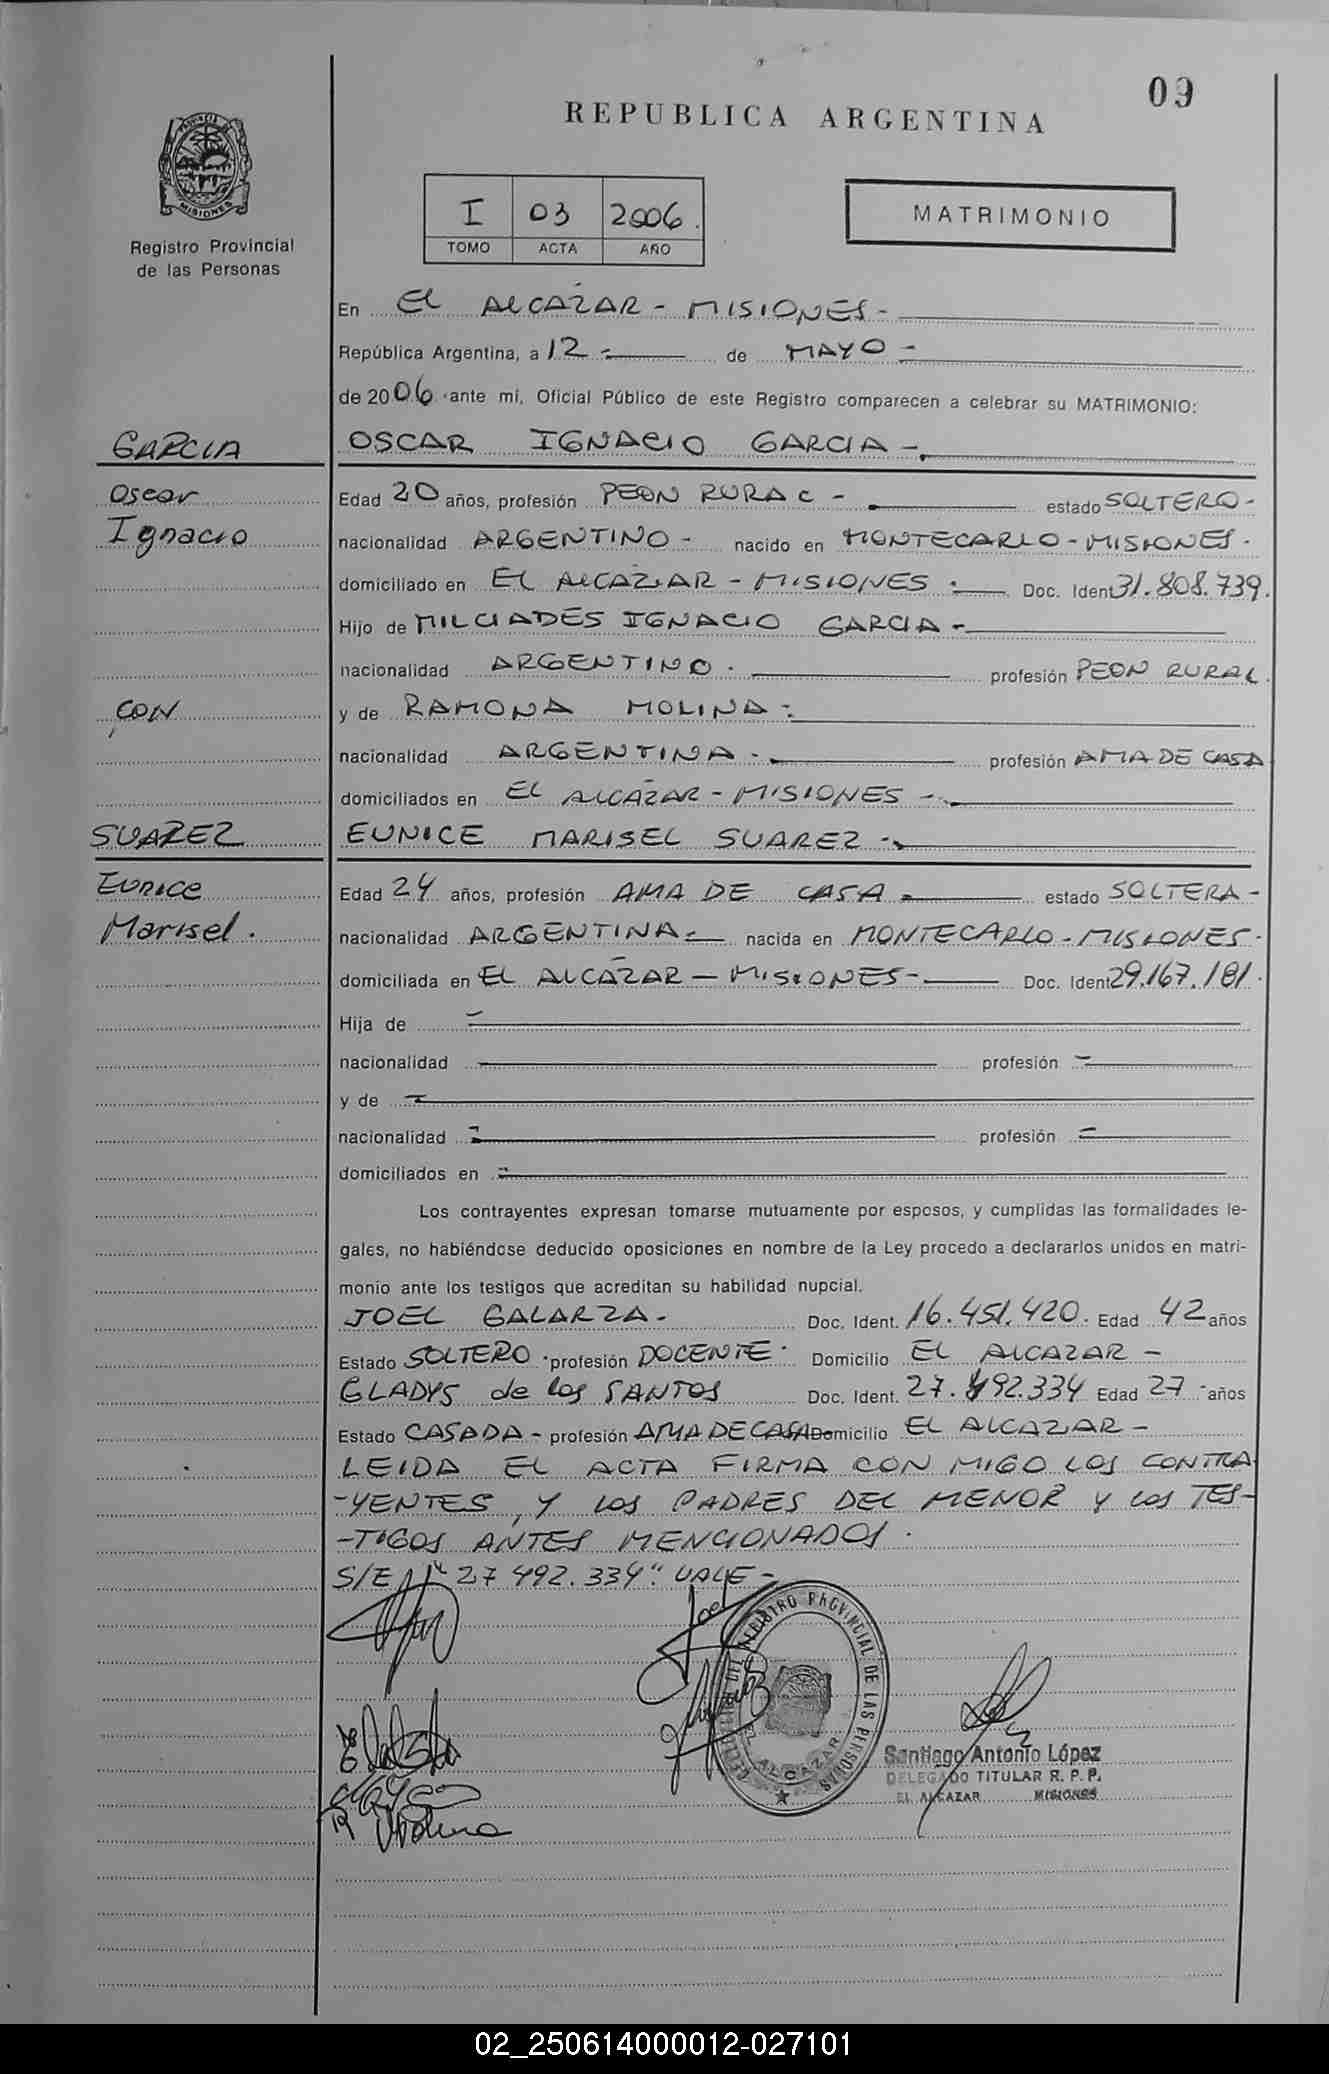 09
REPUBLICA ARGENTINA
PROVINCIA DE
MISIONES
Registro Provincial
de las Personas
I 03 2006.
TOMO ACTA AÑO
MATRIMONIO
En EL ALCAZAR - MISIONES -
República Argentina, a 12 - de MAYO -
de 2006 ante mí, Oficial Público de este Registro comparecen a celebrar su MATRIMONIO:
GARCIA
OSCAR IGNACIO GARCIA -
Oscar
Ignacio
Edad 20 años, profesión PEON RURAL - estado SOLTERO -
nacionalidad ARGENTINO - nacido en MONTECARLO - MISIONES -
domiciliado en EL ALCAZAR - MISIONES - Doc. Ident 31.808.739.
Hijo de MILCIADES IGNACIO GARCIA -
nacionalidad ARGENTINO - profesión PEON RURAL
CON
y de RAMONA MOLINA -
nacionalidad ARGENTINA - profesión AMA DE CASA
domiciliados en EL ALCAZAR - MISIONES -
SUAREZ
EUNICE MARISEL SUAREZ -
Eunice
Marisel.
Edad 24 años, profesión AMA DE CASA - estado SOLTERA -
nacionalidad ARGENTINA - nacida en MONTECARLO - MISIONES -
domiciliada en EL ALCAZAR - MISIONES - Doc. Ident 29.167.181.
Hija de -
nacionalidad profesión -
y de -
nacionalidad - profesión -
domiciliados en -
Los contrayentes expresan tomarse mutuamente por esposos, y cumplidas las formalidades le-
gales, no habiéndose deducido oposiciones en nombre de la Ley procedo a declararlos unidos en matri-
monio ante los testigos que acreditan su habilidad nupcial.
JOEL GALARZA - Doc. Ident. 16.451.420. Edad 42 años
Estado SOLTERO - profesión DOCENTE - Domicilio EL ALCAZAR -
GLADYS de los SANTOS Doc. Ident. 27.492.334 Edad 27 - años
Estado CASADA - profesión AMA DE CASA Domicilio EL ALCAZAR -
LEIDA EL ACTA FIRMA CON MIGO LOS CONTRA
-YENTES, Y LOS PADRES DEL MENOR Y LOS TES-
-TIGOS ANTES MENCIONADOS.
S/E N° 27 492.334" VALE -
REGISTRO PROVINCIAL DE LAS PERSONAS
EL ALCAZAR
Santiago Antonio López
DELEGADO TITULAR R. P. P.
EL ALCAZAR MISIONES
R Molina
02_250614000012-027101